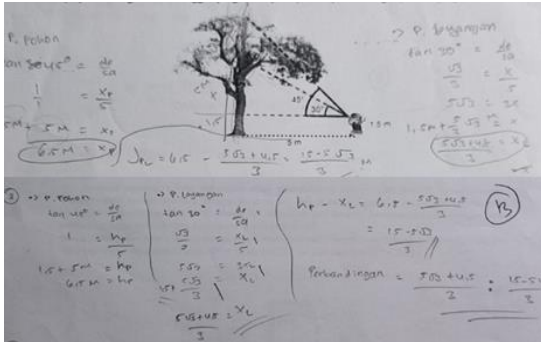 P. Pohon
tan 45° = de/sa
1/1 = xp/5
5M + 1,5 M = xp
6,5 M = xp
45°
30°
1,5 m
5 m
1,5
=> P. layangan
tan 30° = de/sa
√3/3 = x/5
5√3 = 3x
1,5m + 5/3 √3 = x
(5√3 + 4,5)/3 = x2
= 6,5 - (5√3 + 4,5)/3 = (15 - 5√3)/3 M
=> P. Pohon
tan 45° = de/sa
1 = hp/5
1,5 + 5 M = hp
6,5 M = hp
=> P. layangan
tan 30° = de/sa
√3/3 = xL/5
5√3 = 3xL
1,5 + 5√3/3 = xL
(5√3 + 4,5)/3 = xL
hp - xL = 6,5 - (5√3 + 4,5)/3
= (15 - 5√3)/3
B
Perbandingan = (5√3 + 4,5)/3 :